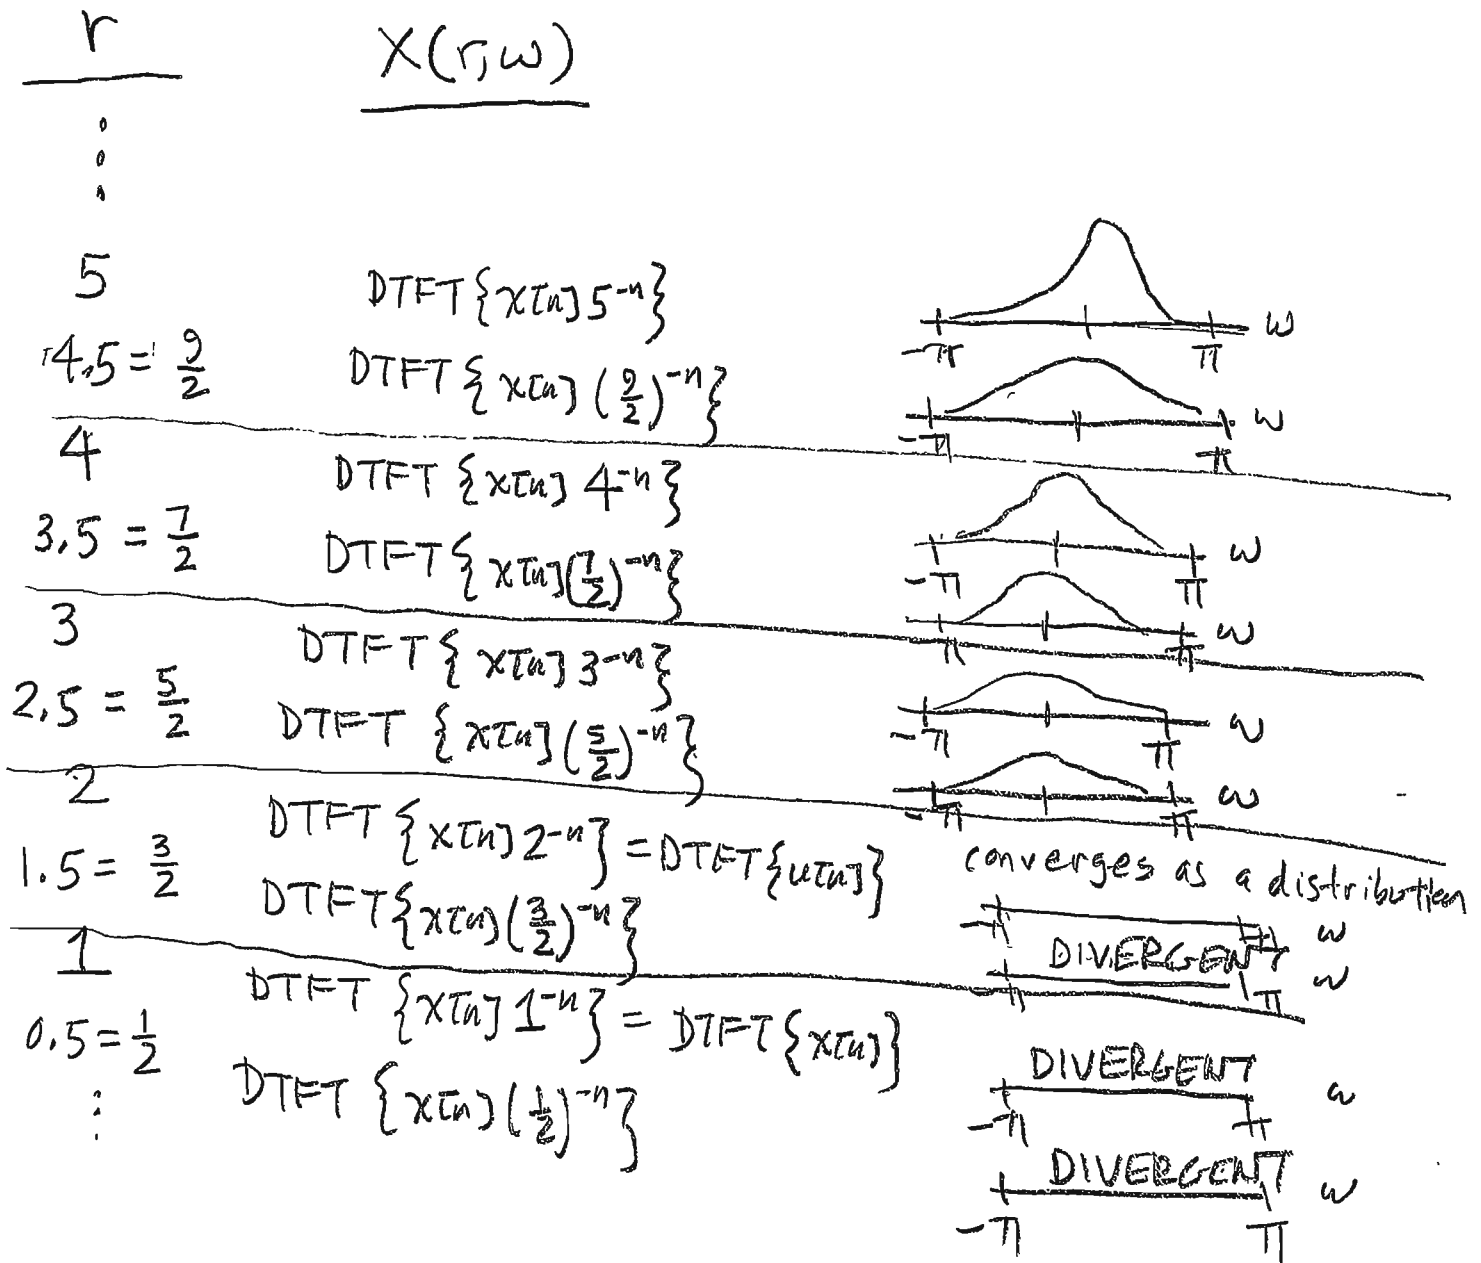 r X(r,ω)
⋮
5 DTFT{x[n] 5⁻ⁿ} -π π ω
4.5 = 9/2 DTFT{x[n] (9/2)⁻ⁿ} -π π ω
4 DTFT{x[n] 4⁻ⁿ} -π π ω
3.5 = 7/2 DTFT{x[n] (7/2)⁻ⁿ} -π π ω
3 DTFT{x[n] 3⁻ⁿ} -π π ω
2.5 = 5/2 DTFT{x[n] (5/2)⁻ⁿ} -π π ω
2 DTFT{x[n] 2⁻ⁿ} = DTFT{u[n]} converges as a distribution
1.5 = 3/2 DTFT{x[n] (3/2)⁻ⁿ} -π π ω
DIVERGENT -π π ω
1 DTFT{x[n] 1⁻ⁿ} = DTFT{x[n]} DIVERGENT -π π ω
0.5 = 1/2 DTFT{x[n] (1/2)⁻ⁿ} DIVERGENT -π π ω
⋮